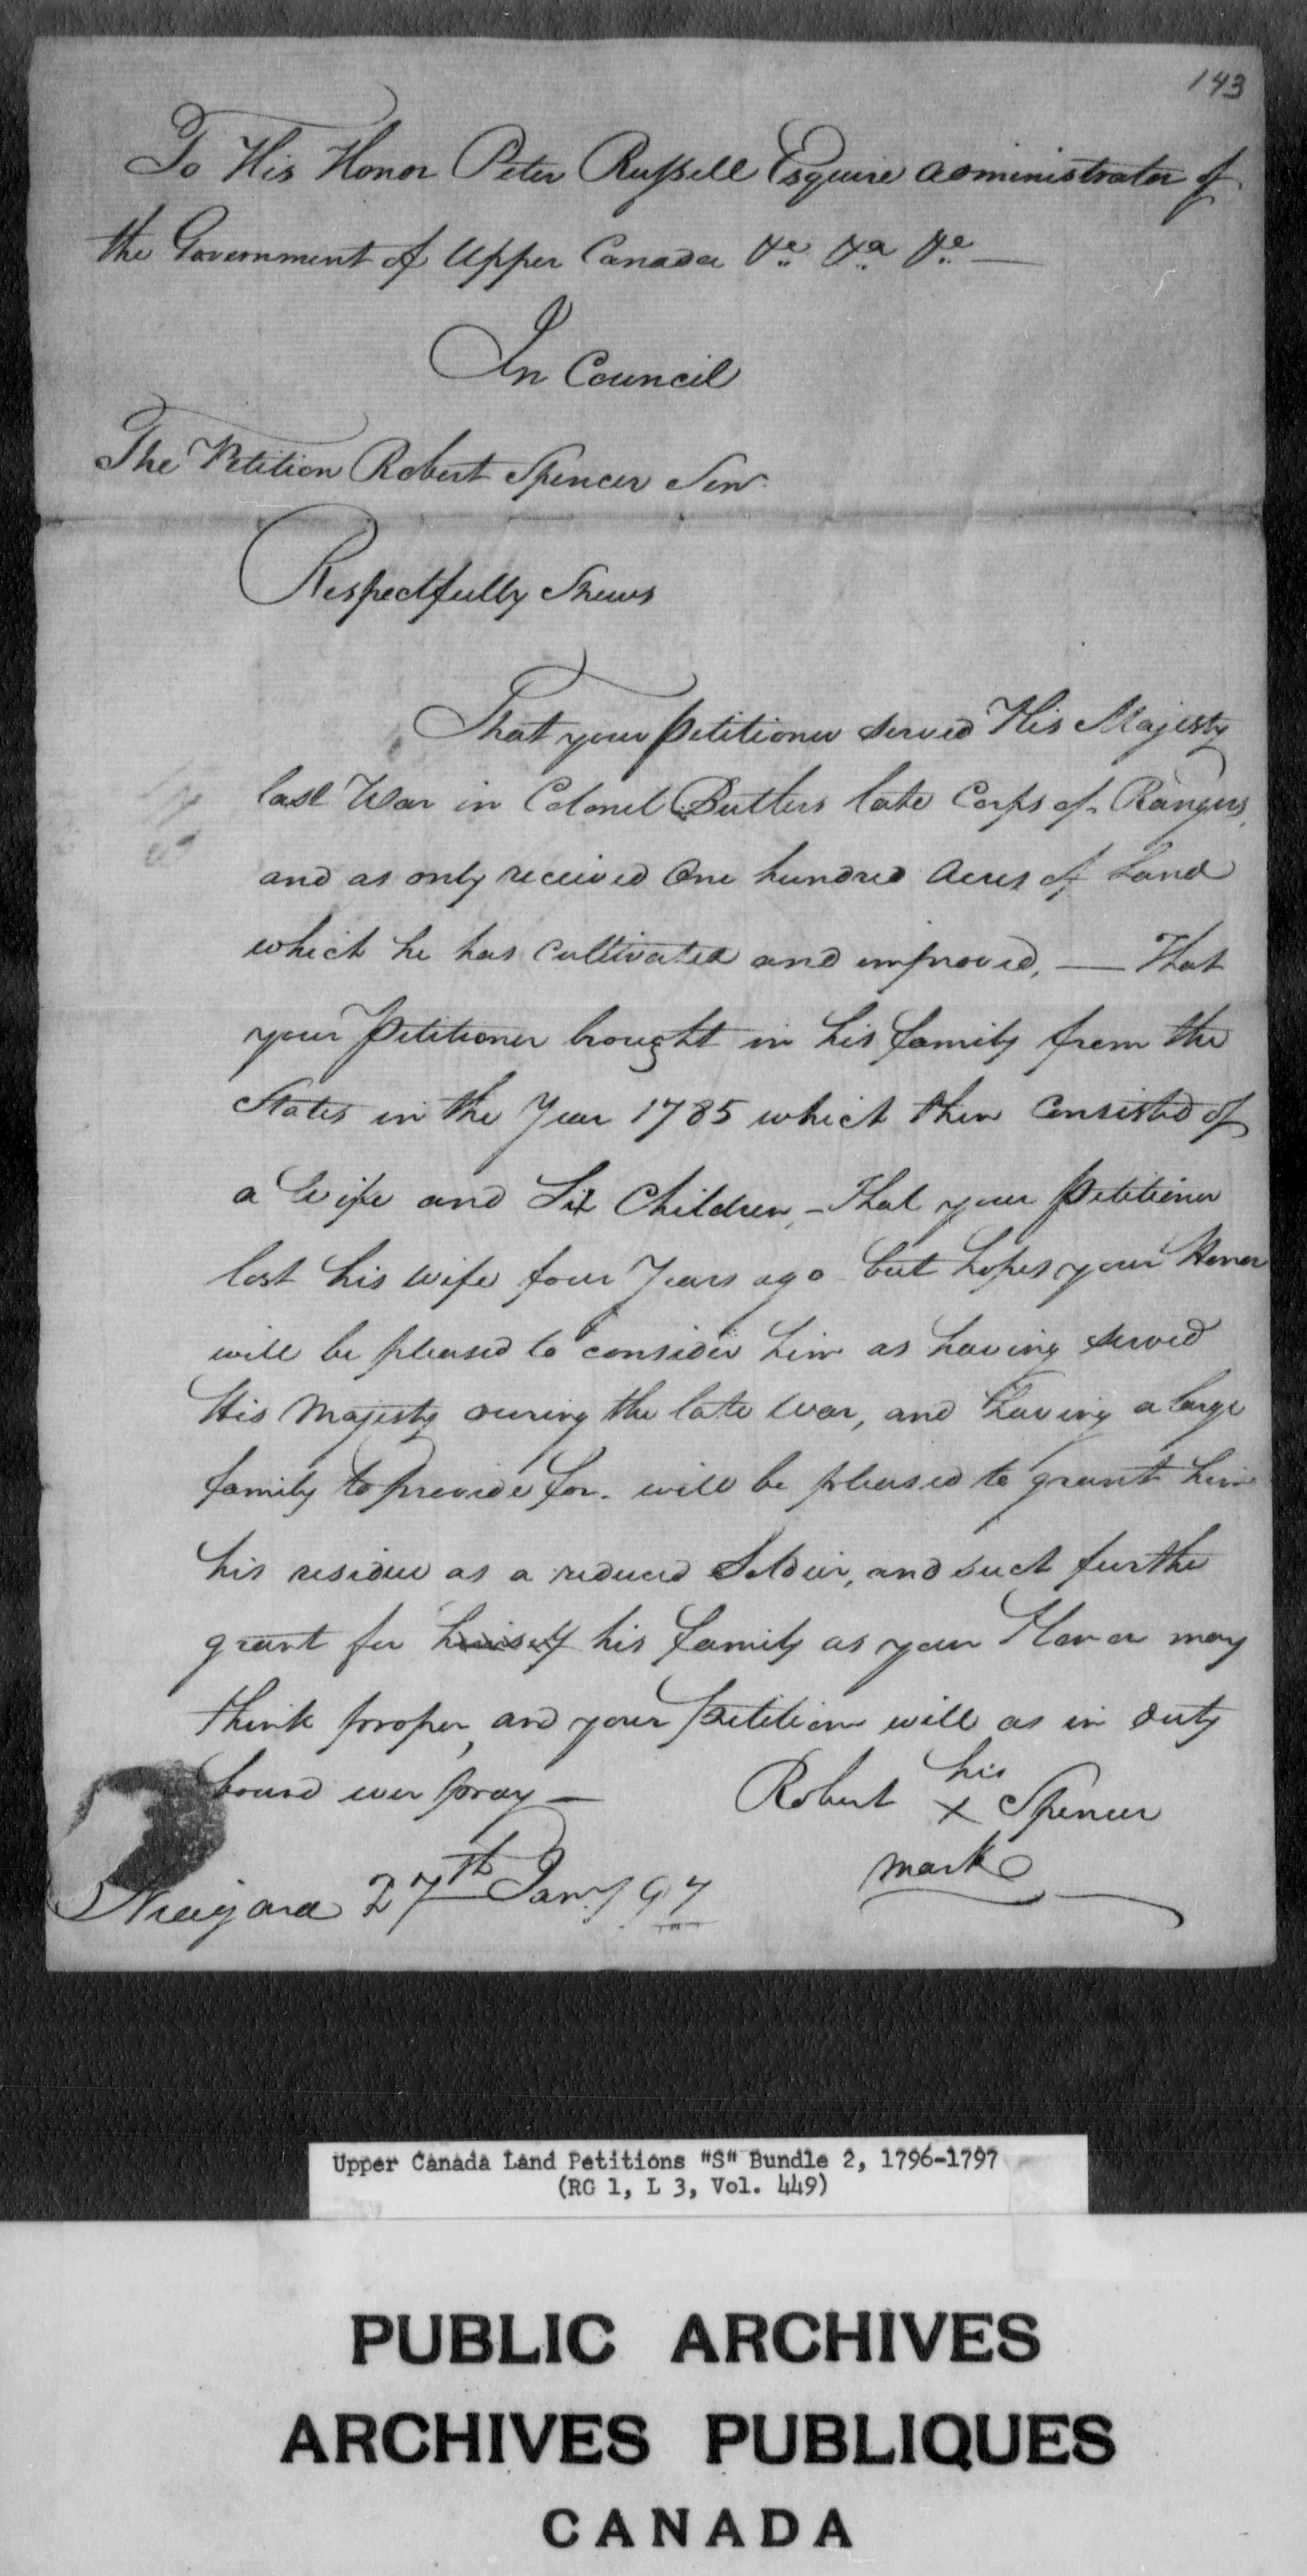 143
To His Honor Peter Russell Esquire administrator of
the Government of Upper Canada &c &a &c —
In Council
The Petition Robert Spencer Senr.
Respectfully Shews
That your petitioner served His Majesty
last War in Colonel Butlers late Corps of Rangers,
and as only received One hundred Acres of Land
which he has Cultivated and improved, — That
your petitioner brought in his family from the
States in the Year 1785 which then Consisted of
a Wife and Six Children, - That your petitioner
lost his wife four Years ago but hopes your Honor
will be pleased to consider him as having served
His Majesty during the late War, and having a large
family to provide for. will be pleased to grant him
his residue as a reduced Soldier, and such further
grant for himself his family as your Honor may
think proper, and your petitioner will as in duty
bound ever pray —
Robert his x Spencer
mark
Niagara 27th Jany 97
Upper Canada Land Petitions "S" Bundle 2, 1796-1797
(RG 1, L 3, Vol. 449)
PUBLIC ARCHIVES
ARCHIVES PUBLIQUES
CANADA